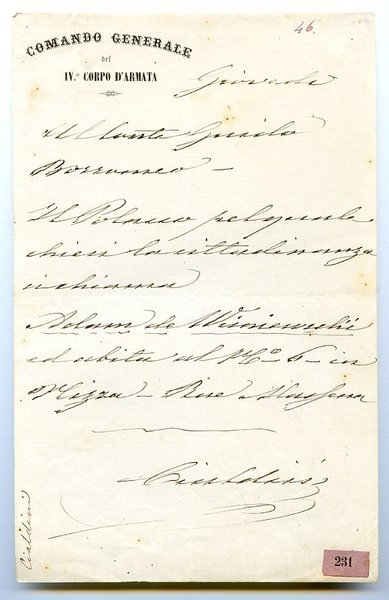 46.
COMANDO GENERALE
del
IV.º CORPO D'ARMATA
Giovedi
Al Conte Guido
Borromeo –
Il Polacco pel quale
chiesi la cittadinanza
si chiama
Adam de Wisniewski
ed abita al Nº 6 – in
Nizza – Rue Massena
Cialdini
Cialdini
231